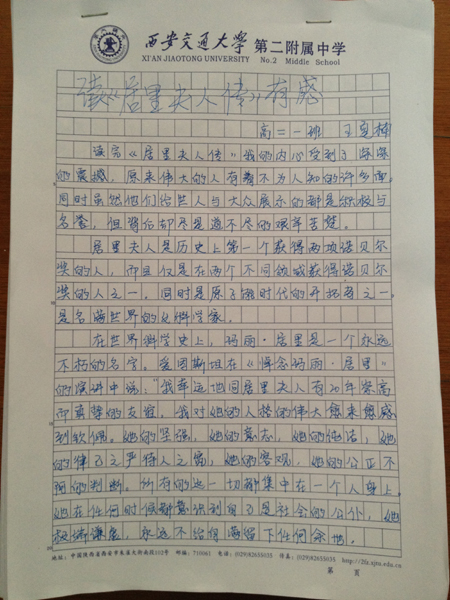 西安交通大学 第二附属中学
XI'AN JIAOTONG UNIVERSITY No.2 Middle School
读《居里夫人传》有感
高二一班 王
读完《居里夫人传》我的内心受到了深深
的震撼,原来伟大的人有着不为人知的许多面,
同时虽然他们给世人与大众展示的都是积极与
名誉,但背后却尽是道不尽的艰辛苦楚。
居里夫人是历史上第一个获得两项诺贝尔
奖的人,而且仅是在两个不同领域获得诺贝尔
奖的人之一,同时是原子能时代的开拓者之一
是名满世界的女科学家。
在世界科学史上,玛丽·居里是一个永远
不朽的名字。爱因斯坦在《悼念玛丽·居里》
的演讲中说:"我幸运地同居里夫人有20年崇高
而真挚的友谊,我对她的人格的伟大愈来愈感
到钦佩。她的坚强,她的意志,她的纯洁,她
的律己之严待人之宽,她的客观,她的公正不
阿的判断。所有的这一切都集中在一个人身上。
她在任何时候都意识到自己是社会的公仆,她
极端谦虚,永远不给自满留下任何余地。
地址:中国陕西省西安市朱雀大街南段102号 邮编:710061 电话:(029)82655035 传真:(029)82655035 http://2fz.xjtu.edu.cn
第 页